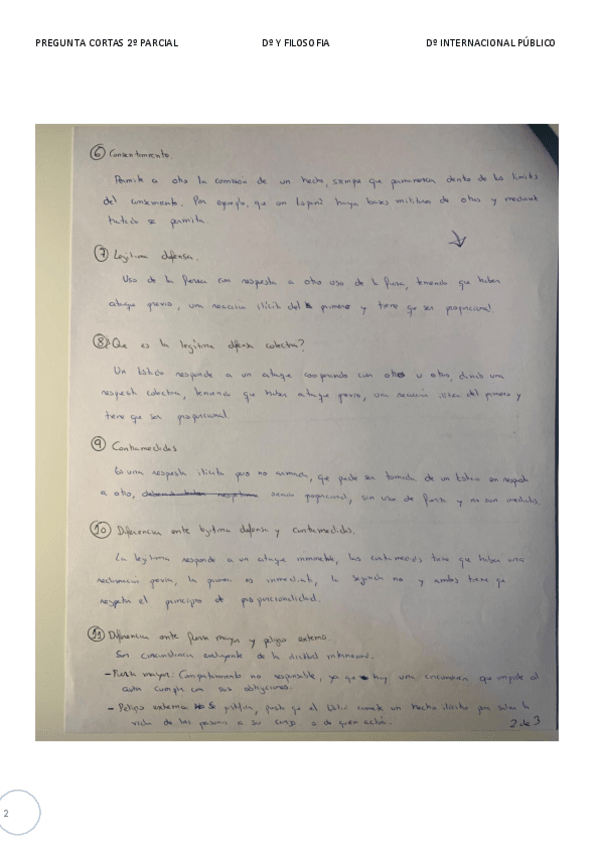 PREGUNTA CORTAS 2º PARCIAL Dº Y FILOSOFIA Dº INTERNACIONAL PÚBLICO
⑥ Consentimiento.
Permite a otro la comisión de un hecho, siempre que permanezca dentro de los límites
del consentimiento. Por ejemplo, que en España haya bases militares de otros y mediante
tratado se permita.
⑦ Legítima defensa.
Uso de la fuerza con respuesta a otro uso de la fuerza, teniendo que haber
ataque previo, una reacción ilícita del primero y tiene que ser proporcional.
⑧ Que es la legítima defensa colectiva?
Un Estado responde a un ataque cooperando con otro u otros, dando una
respuesta colectiva, teniendo que haber ataque previo, una reacción ilícita del primero y
tiene que ser proporcional.
⑨ Contramedidas
Es una respuesta ilícita pero no armada, que puede ser tomada de un Estado en respuesta
a otro, siendo proporcional, sin uso de fuerza y no son
⑩ Diferencias entre legítima defensa y contramedidas.
La legítima responde a un ataque inminente, las contramedidas tiene que haber una
reclamación previa, la primera es inmediata, la segunda no y ambas tiene que
respetar el principio de proporcionalidad.
⑪ Diferencias entre fuerza mayor y peligro extremo.
Son circunstancias excluyente de la ilicitud internacional.
- Fuerza mayor: Comportamiento no responsable, ya que hay una circunstancia que impide al
autor cumplir con sus obligaciones.
- Peligro extremo: se justifica, puesto que el Estado comete un hecho ilícito para salvar la
vida de las personas a su cargo o de quien actúa.
2 de 3
2